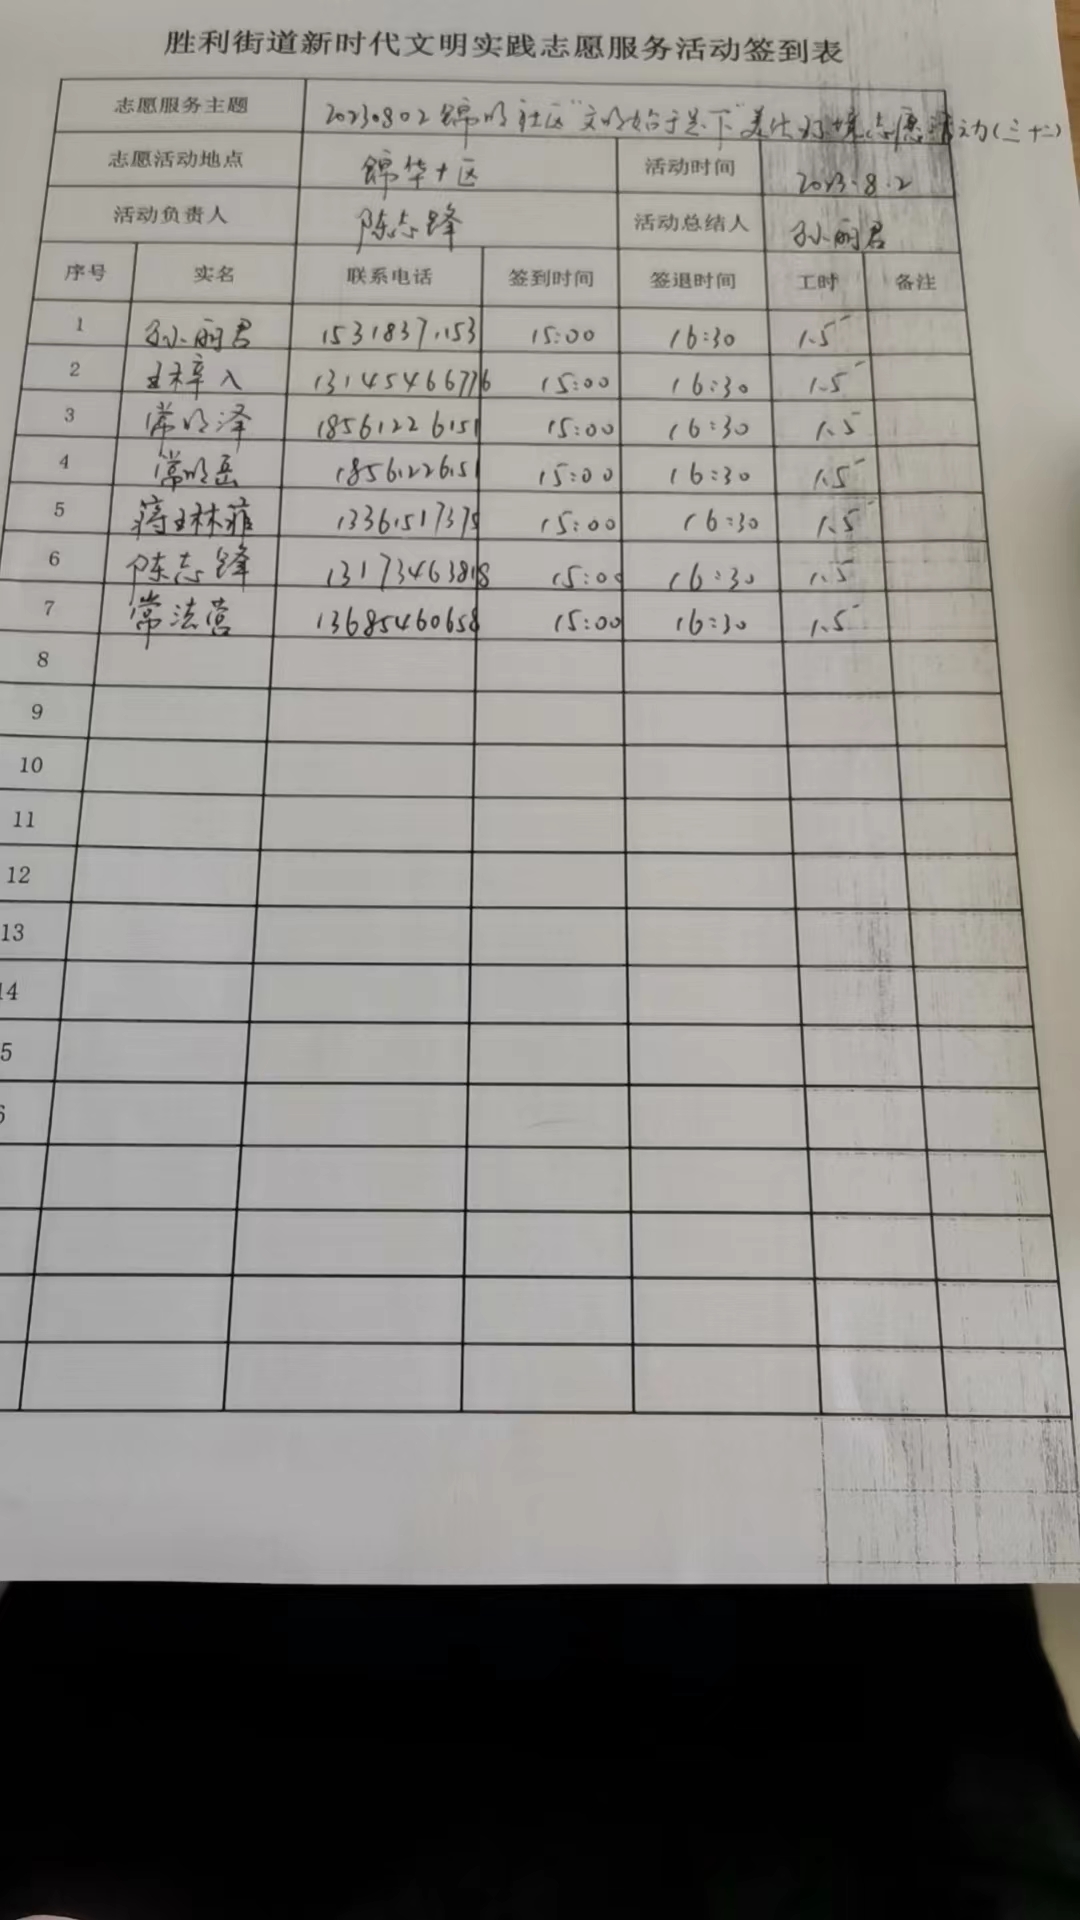 胜利街道新时代文明实践志愿服务活动签到表
志愿服务主题 20230802锦明社区"文明始于足下"美化环境志愿活动(三十二)
志愿活动地点 锦华十区 活动时间 2023.8.2
活动负责人 陈志锋 活动总结人 孙丽君
序号 实名 联系电话 签到时间 签退时间 工时 备注
1 孙丽君 15318371153 15:00 16:30 1.5
2 13145466776 15:00 16:30 1.5
3 常明泽 18561226151 15:00 16:30 1.5
4 常明岳 18561226151 15:00 16:30 1.5
5 蒋琳菲 13361517375 15:00 16:30 1.5
6 陈志锋 13173463818 15:00 16:30 1.5
7 常法营 13685460658 15:00 16:30 1.5
8
9
10
11
12
13
14
5
6